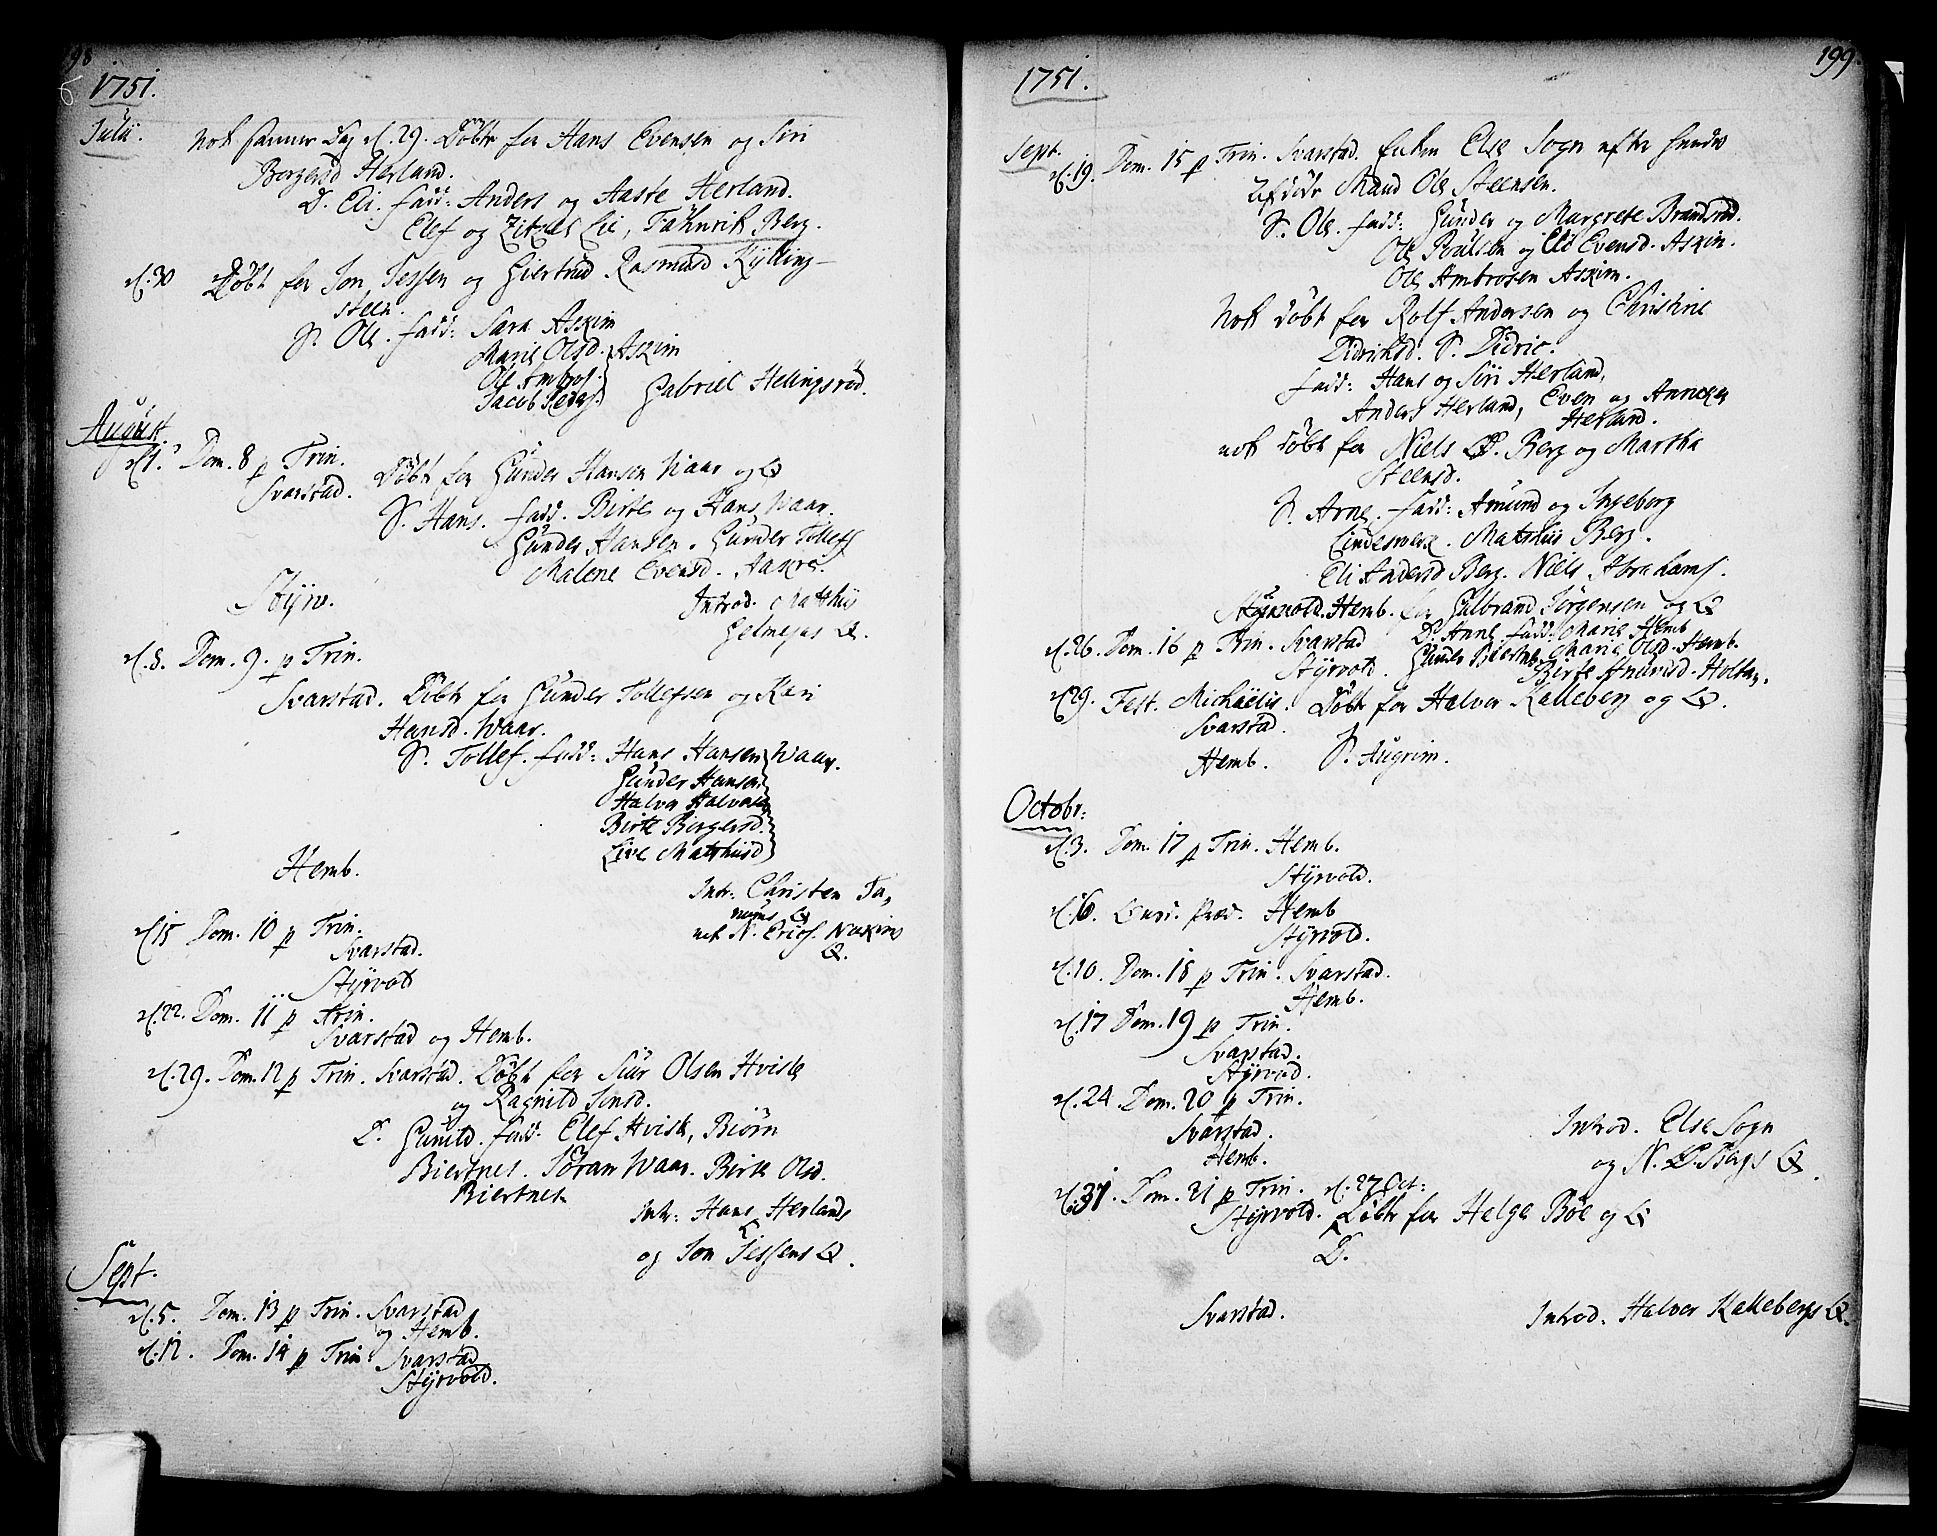 198
1751.
Julii.
Nok samme Dag d. 29. Døbt for Hans Evensen og Siri
Borgersd Herland.
D. Eli. fadd: Anders og Aaste Herland.
Elef og Lie, Fähnrik Berg.
d. 30 Døbt for Jon Jessen og Giertrud Rasmusd Kylling-
steen.
S. Ole. fadd: Sara Askim
Marie Olsd. Askim
Ole Ambros.
Jacob Gabriel Helingsrød.
August.
d. 1. Dom. 8 p Trin.
Svarstad. Døbt for Gunder Hansen Waar og Q
S. Hans. fadd. Birte og Hans Waar.
Gunder Hansen. Gunder Tollefs
Malene Evensd. Aakre.
Styrv. Introd. Matthis
Gelmejus Q.
d. 8. Dom. 9. p Trin.
Svarstad. Døbt for Gunder Tollefsen og Kari
Hansd. Waar.
S. Tollef. fadd: Hans Hansen Waar.
Gunder Hansen
Halvor Halvorsen
Birte Borgersd.
Live Mathisd
Hemb.
Intr: Christen Ta,
nums Q
d. 15 Dom. 10 p Trin. nok N. Erics.
Svarstad. Q.
Styrvol
d. 22. Dom. 11 p Trin.
Svarstad og Hemb.
d. 29. Dom. 12 p Trin. Svarstad. Døbt for Siur Olsen Hviste
og Ragnild Jonsd.
D. Gunild. fadd: Elef Hvist, Biørn
Biertnes. Søran Waar. Birte Olsd.
Biertnes.
Intr: Hans Herlands
og Jon Jessens Q.
Sept.
d. 5. Dom. 13 p Trin. Svarstad
og Hemb.
d. 12. Dom. 14 p Trin Svarstad
Styrvold.
199.
1751.
Sept.
d. 19. Dom. 15 p Trin. Svarstad. Enken Else Sogn efter hendes
afdøde Mand Ole Steensen.
S. Ole. fadd: Gunder og Margrete Brandsrød.
Ole Poulsen og Eli Evensd. Askim.
Ole Ambrosen Askim.
Nok døbt for Rolf Andersen og Christine
Didriksd. S. Didric.
fadd: Hans og Siri Herland,
Anders Herland, Even og Anneken
Herland.
nok døbt for Niels D. Berg og Martha
Steensd.
S. Arne. fadd: Amund og Ingeborg
Lindeswerk. Mathis Berg.
Eli Andersd Berg. Niels Abrahams.
Styrvold. Hemb. for Gulbrand Jørgensen og Q
d. 26. Dom. 16 p Trin. Svarstad D. Anne fadd: Marie Hemb
Styrvold. Gunder Biertnes Marie Olsd. Hemb.
Birte Amundsd. Holtan.
d. 29. Fest. Michaëlis. Døbt for Halvor Kalleberg og Q.
Svarstad.
Hemb. S. Augrim.
Octobr:
d. 3. Dom. 17 p Trin. Hemb.
Styrvold.
d. 6. Præd. Hemb
Styrvold.
d. 10. Dom. 18 p Trin. Svarstad.
Hemb.
d. 17 Dom. 19 p Trin.
Svarstad.
Styrvold.
d. 24. Dom. 20 p Trin.
Svarstad. Introd. Else Sogn
Hemb. og N. D. Bergs Q.
d. 31. Dom. 21 p Trin. d. 27 Oct:
Styrvold. Døbt for Helge Bøe og Q
D.
Svarstad. Introd. Halvor Kallebergs Q.